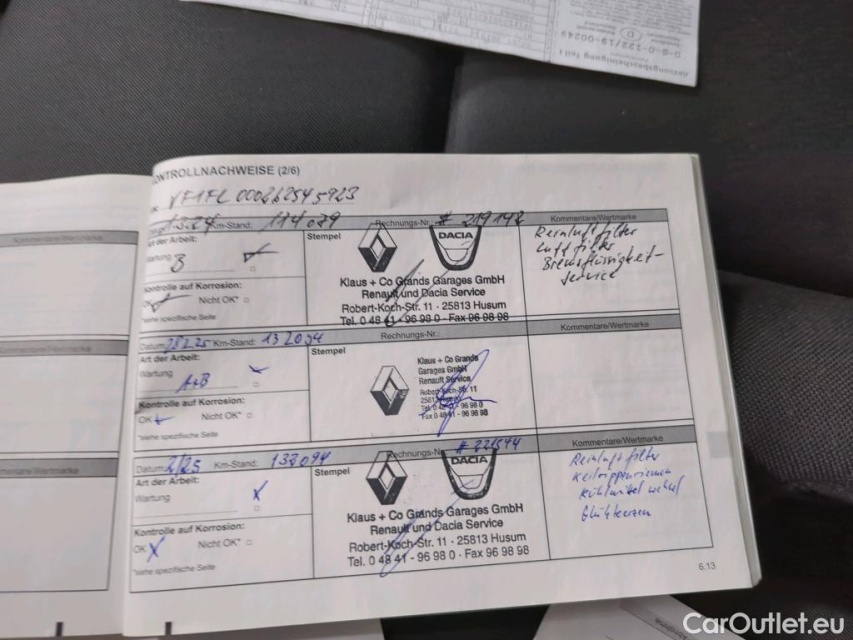 Zulassungsbescheinigung Teil I
D
0-8-0-122/19-00249
KONTROLLNACHWEISE (2/6)
VF1FL000262545923
Km-Stand: 114 079 Rechnungs-Nr.: # 219148 Kommentare/Wertmarke
Art der Arbeit: Stempel
Wartung B
Kontrolle auf Korrosion:
OK Nicht OK*
*siehe spezifische Seite
DACIA
Klaus + Co Grands Garages GmbH
Renault und Dacia Service
Robert-Koch-Str. 11 · 25813 Husum
Tel. 0 48 41 - 96 98 0 · Fax 96 98 98
Reinluftfilter
Luftfilter
Bremsflüssigkeit-
service
Datum: Km-Stand: 132094 Rechnungs-Nr.: Kommentare/Wertmarke
Art der Arbeit: Stempel
Wartung
A+B
Kontrolle auf Korrosion:
OK Nicht OK*
*siehe spezifische Seite
Klaus + Co Grands
Garages GmbH
Renault Service
Robert-Koch-Str. 11
Fax 0 48 41 - 96 98 98
Datum: 2/25 Km-Stand: 133094 Rechnungs-Nr.: Kommentare/Wertmarke
Art der Arbeit: Stempel
Wartung
Kontrolle auf Korrosion:
OK Nicht OK*
*siehe spezifische Seite
DACIA
Klaus + Co Grands Garages GmbH
Renault und Dacia Service
Robert-Koch-Str. 11 · 25813 Husum
Tel. 0 48 41 - 96 98 0 · Fax 96 98 98
Reinluftfilter
Keilrippenriemen
Glühkerzen
6.13
CarOutlet.eu